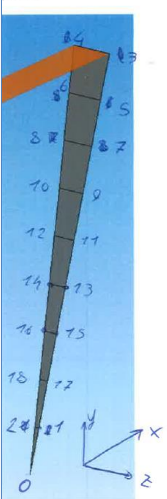 4 3
6 5
8 7
10 9
12 11
14 13
16 15
18 17
2 1
0
y x z